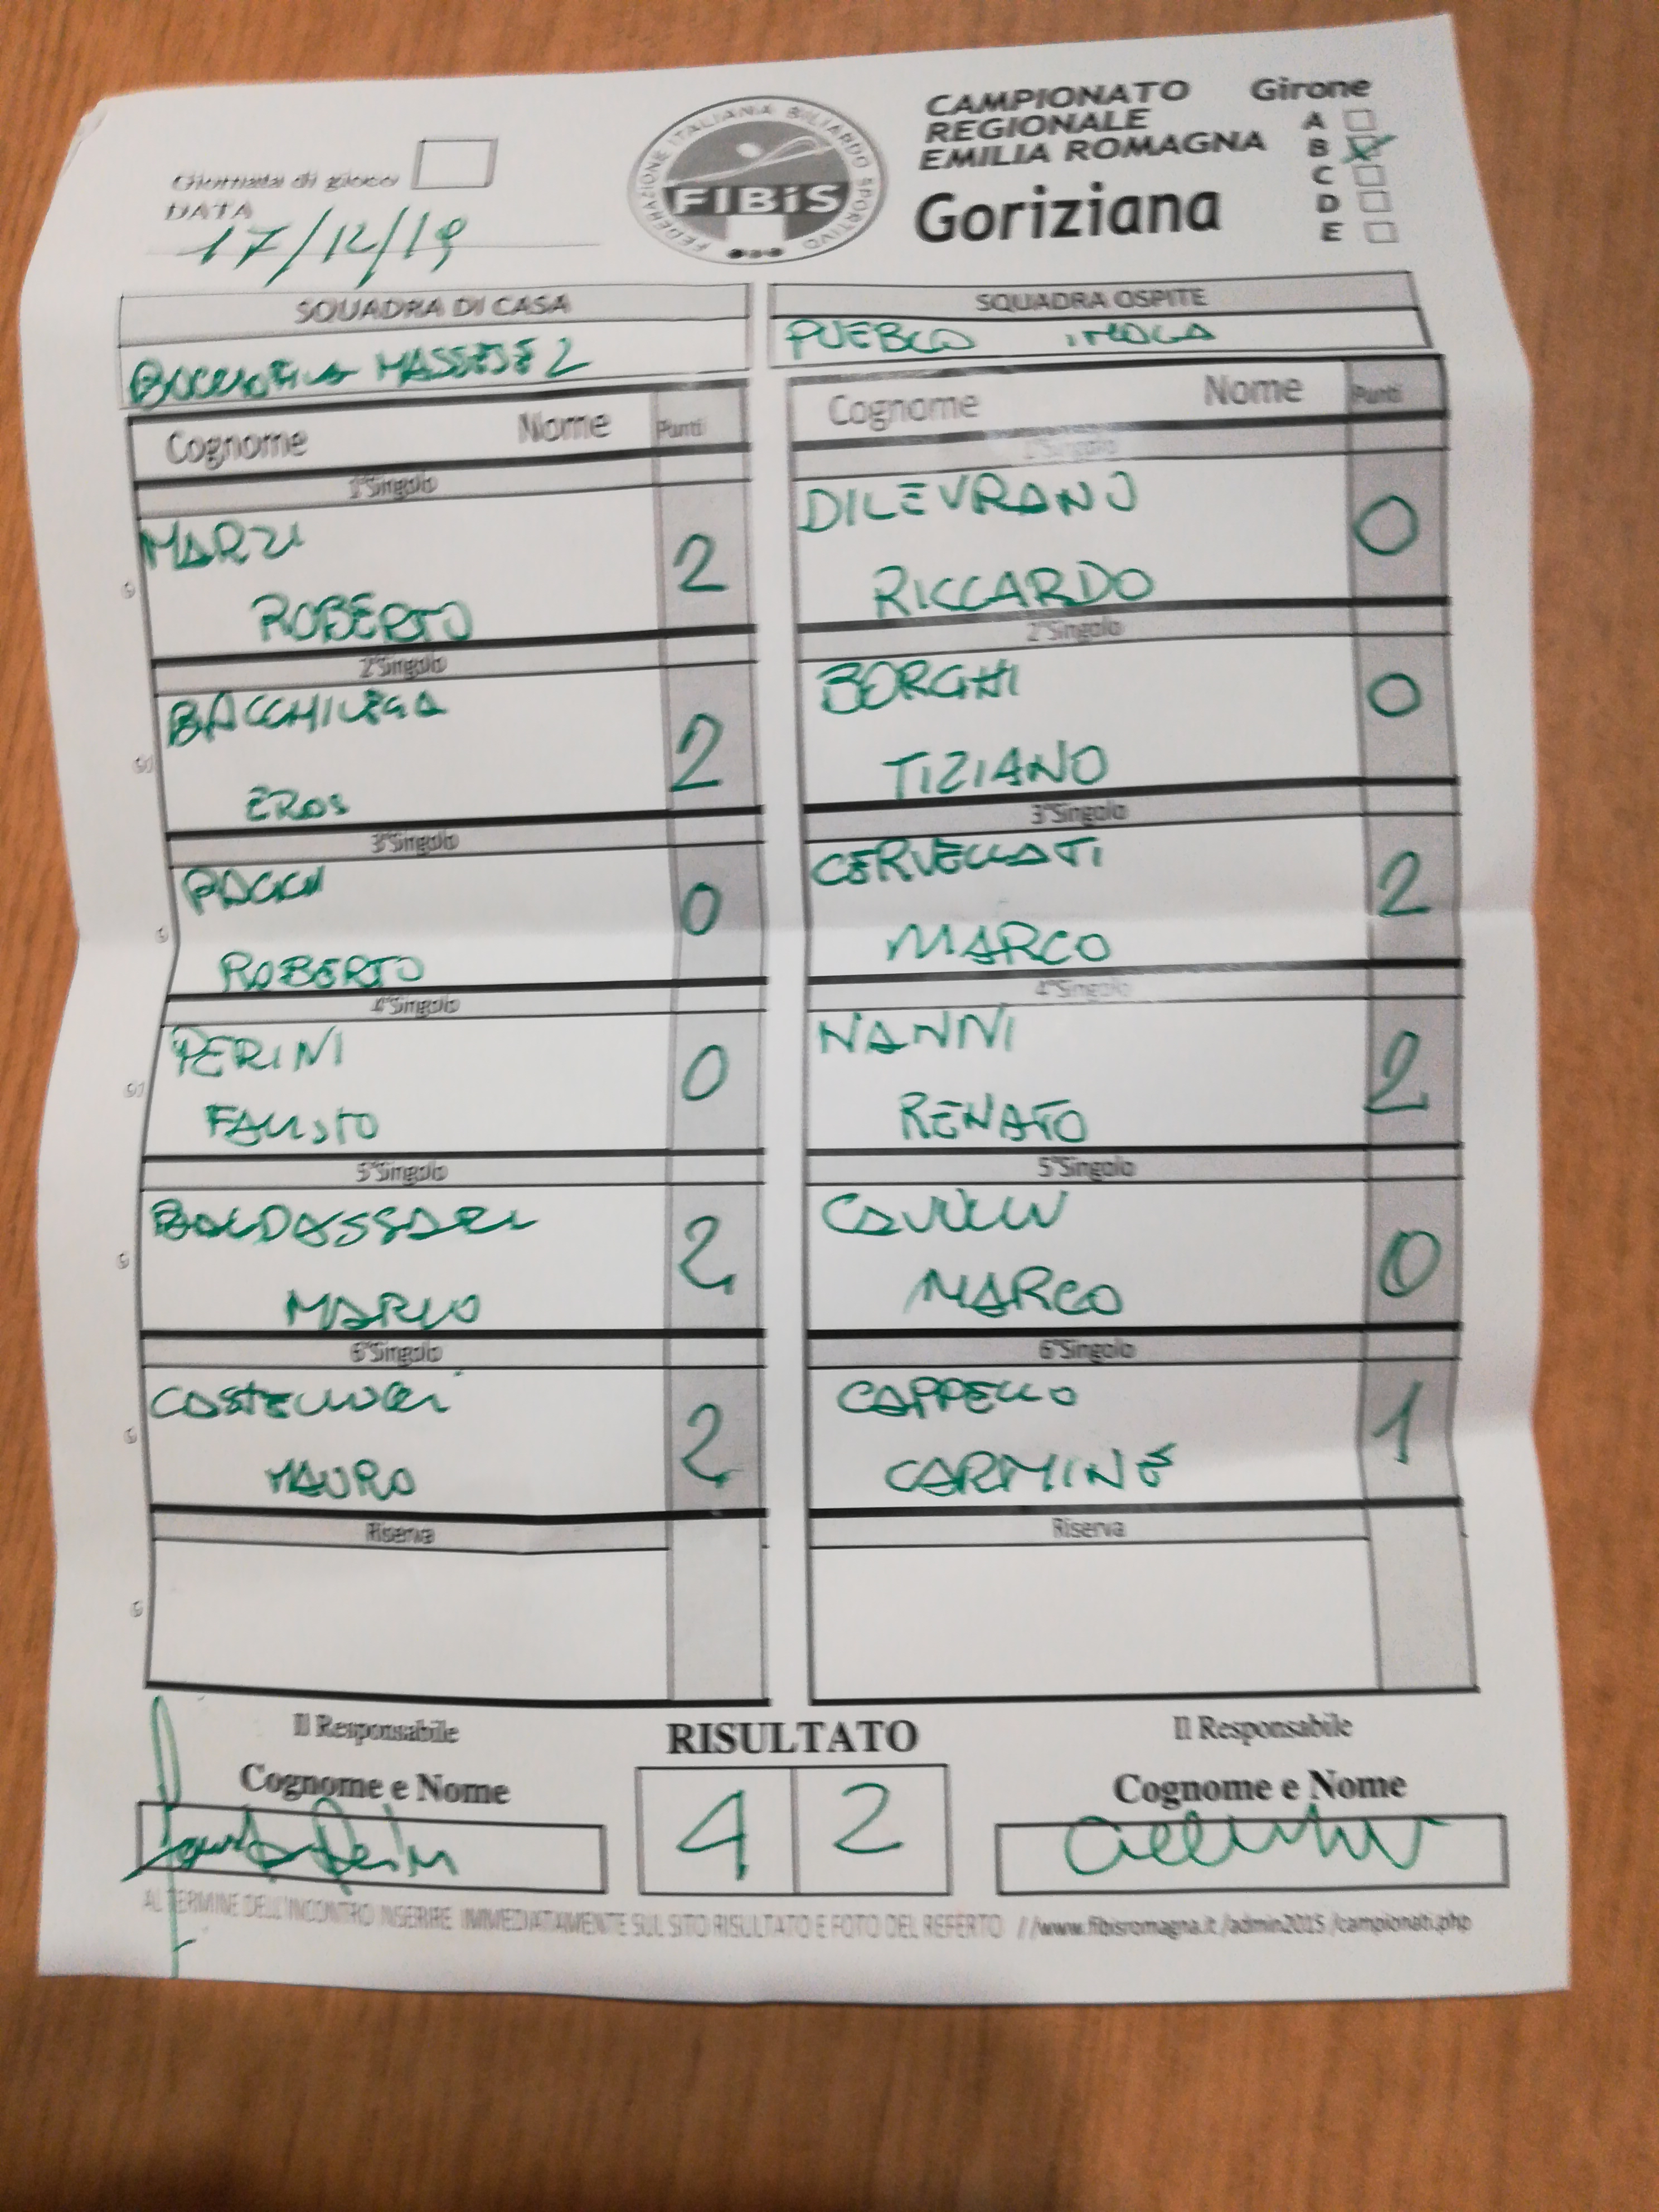 Giornata di gioco
DATA
17/12/19
FEDERAZIONE ITALIANA BILIARDO SPORTIVO
FIBiS
CAMPIONATO
REGIONALE
EMILIA ROMAGNA
Goriziana
Girone
A
B
C
D
E
SQUADRA DI CASA
MASSESE 2
Cognome Nome Punti
1°Singolo
MARZI
ROBERTO
2
2°Singolo
BACCHILEGA
EROS
2
3°Singolo
ROBERTO
0
4°Singolo
PERINI
FAUSTO
0
5°Singolo
BALDASSARI
MARIO
2
6°Singolo
MAURO
2
Riserva
SQUADRA OSPITE
PUEBLO IMOLA
Cognome Nome Punti
1°Singolo
DILEVRANO
RICCARDO
0
2°Singolo
BORGHI
TIZIANO
0
3°Singolo
CERVELLATI
MARCO
2
4°Singolo
NANNI
RENATO
2
5°Singolo
MARCO
0
6°Singolo
CAPPELLO
CARMINE
1
Riserva
Il Responsabile
Cognome e Nome
RISULTATO
4 2
Il Responsabile
Cognome e Nome
AL TERMINE DELL'INCONTRO INSERIRE IMMEDIATAMENTE SUL SITO RISULTATO E FOTO DEL REFERTO //www.fibisromagna.it/admin2015/campionati.php